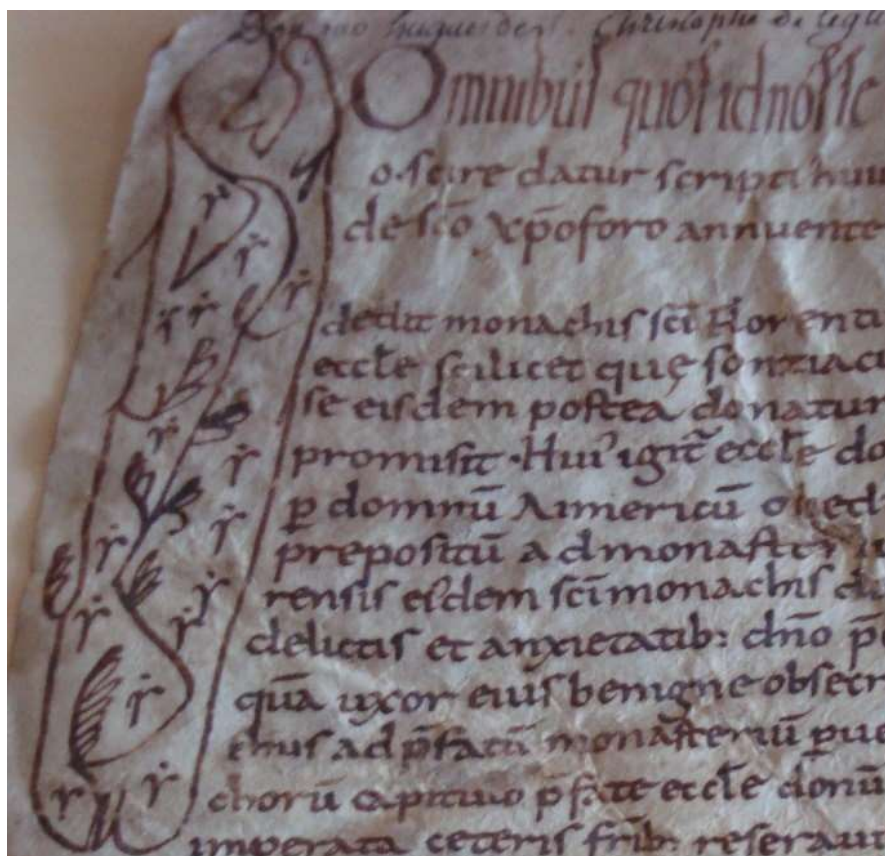 hugues de Christophe de
Omnibus quos id nosse
o. scire datur scripti huiu
de sc̄o xp̄oforo annuente
dedit monachis sc̄i Florenti
eccl̄e scilicet quę sontiacu
se eisdem postea donatur
promisit. Hui᾽ igit̄ eccl̄e do
ꝑ domnū Aimericū
prepositū ad monaster
rensis eisdem sc̄i monachis
delictis et anxietatib: dn̄o
quā uxor eius benigne obsecr
eius ad p̄fatū monasteriū ꝑue
chorū capitulo p̄fate eccl̄e donū
imperata ceteris fr̄ib: reseraut